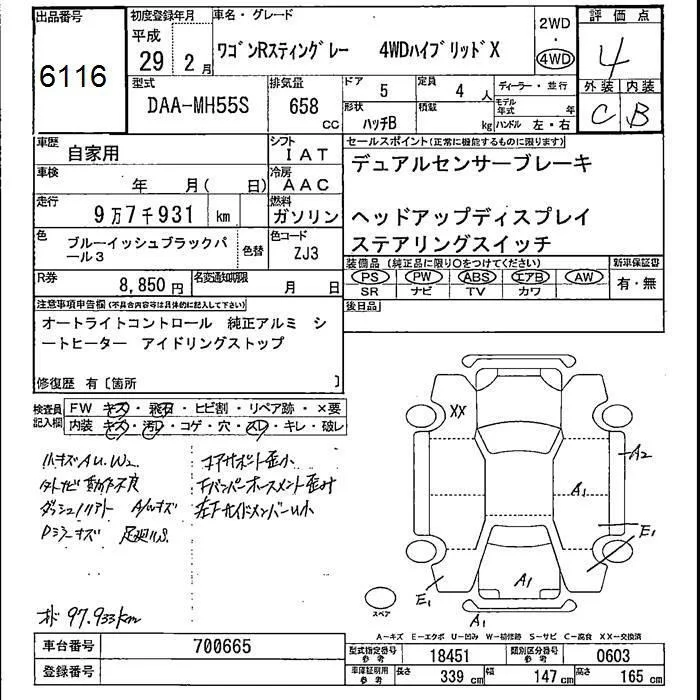 出品番号
6116
初度登録年月
平成
29 2 月
車名・グレード
ワゴンRスティングレー 4WDハイブリッドX
2WD
・
4WD
評価点
4
外装 内装
C B
型式
DAA-MH55S
排気量
658
CC
ドア
5
定員
4 人
形状
ハッチB
積載
kg
ディーラー・並行
モデル年式 年
ハンドル 左・右
車歴
自家用
シフト
IAT
車検
年 月( 日)
冷房
AAC
走行
9万7千931 km
燃料
ガソリン
色
ブルーイッシュブラックパール3
色替
色コード
ZJ3
R券
8,850円
名変通知期限
月 日
セールスポイント(正常に機能するものに限ります)
デュアルセンサーブレーキ
ヘッドアップディスプレイ
ステアリングスイッチ
装備品(純正品に限り○をつけてください)
PS ・ PW ・ ABS ・ エアB ・ AW ・
SR ナビ TV カワ
新車保証書
有・無
後日品
注意事項申告欄(不具合内容等は具体的に記入して下さい)
オートライトコントロール 純正アルミ シ
ートヒーター アイドリングストップ
修復歴 有〔箇所 〕
検査員記入欄
FW キズ・飛石・ヒビ割・リペア跡・×要
内装 キズ・汚レ・コゲ・穴・スレ・キレ・破レ
小キズAU.W2
外ナビ動作不良
コアサポート歪小
オド 97,933km
XX
A2
A1
E1
A1
E1
A1
スペア
A-キズ E-エクボ U-凹み W-補修跡 S-サビ C-腐食 XX-交換済
車台番号
700665
登録番号
型式指定番号
参考
18451
類別区分番号
参考
0603
車庫証明用
参考
長さ
339 cm
幅
147 cm
高さ
165 cm